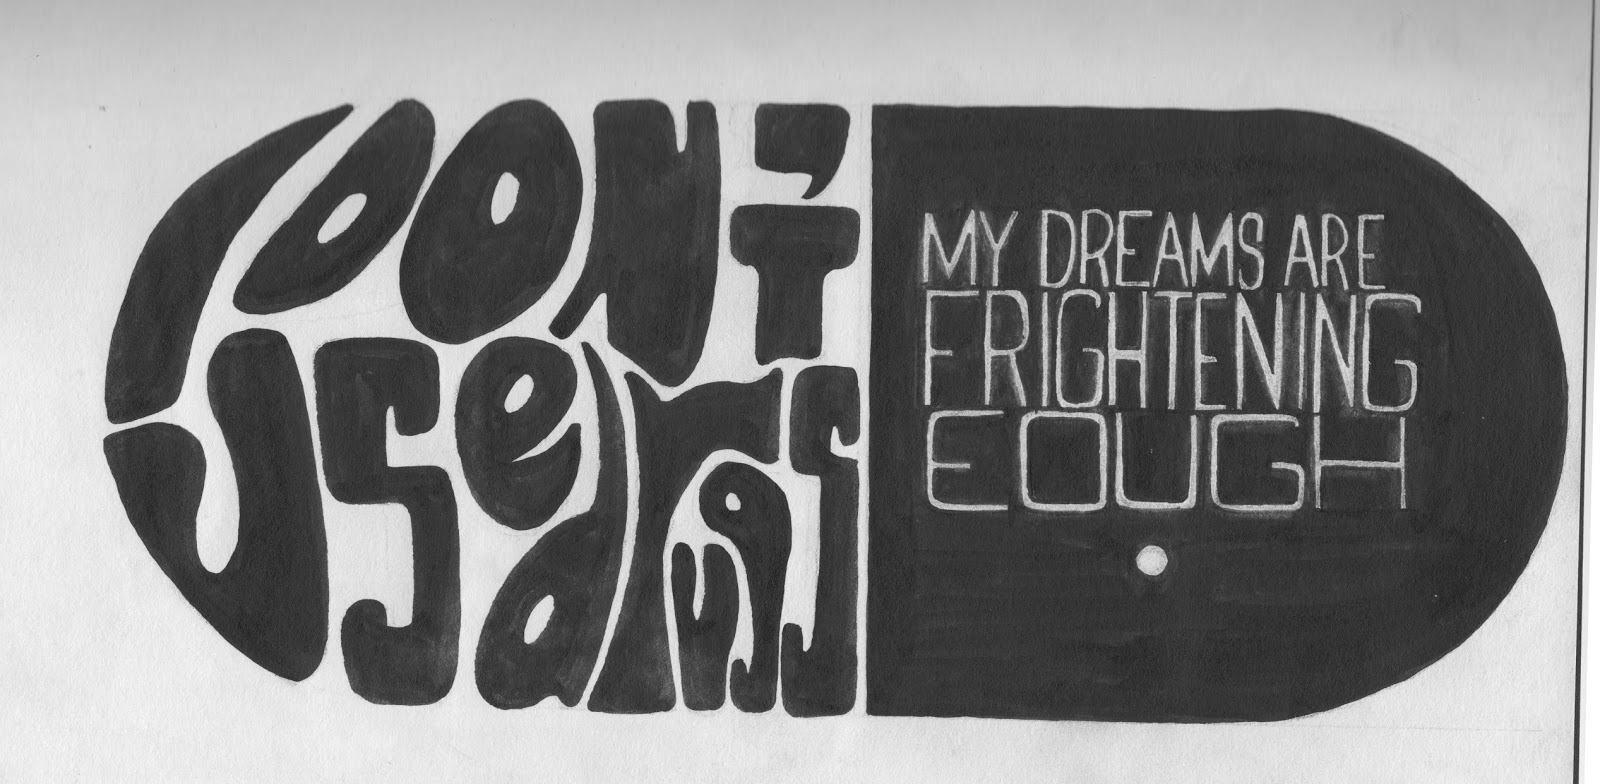 I DON'T
USe drugs
MY DREAMS ARE
FRIGHTENING
EOUGH